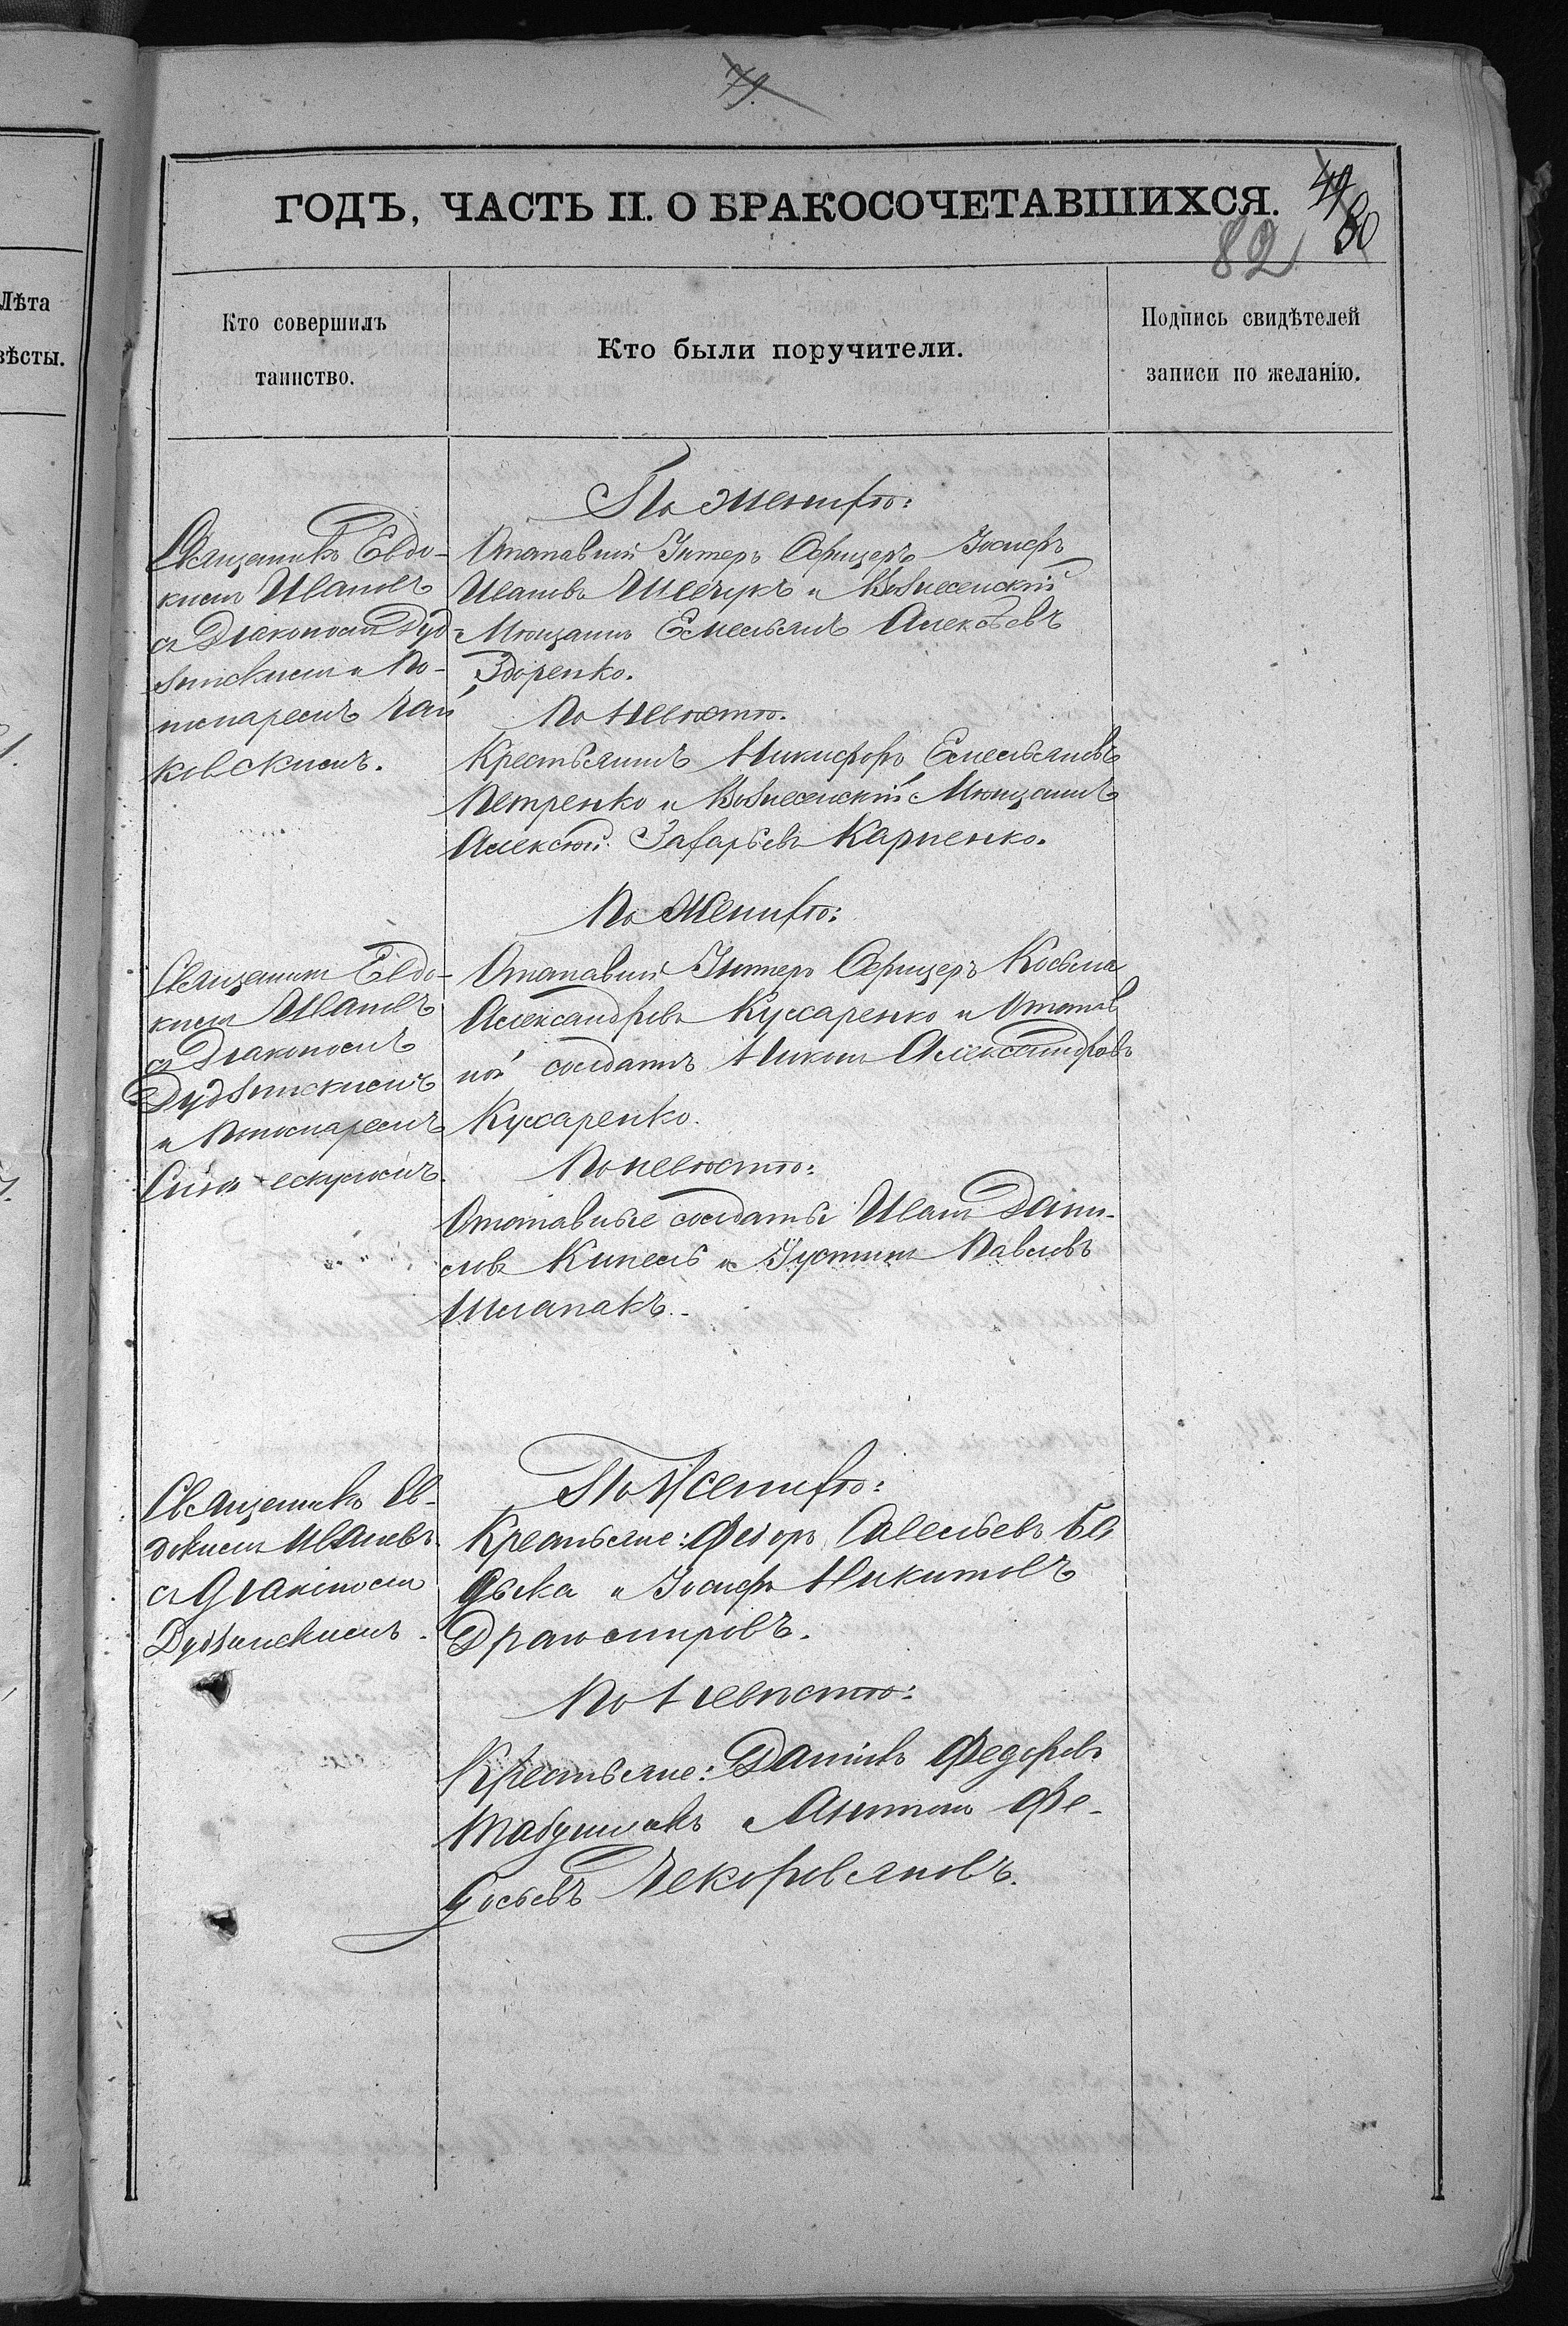 79
ГОДЪ, ЧАСТЬ II. О БРАКОСОЧЕТАВШИХСЯ.
49
80
82
Лѣта
вѣсты.
Кто совершилъ
таинство.
Кто были поручители.
Подпись свидѣтелей
записи по желанію.
Священникъ Евдо-
ким Ивановъ
съ Діакономъ Дуд-
зинскимъ и По-
номаремъ Чай
ковскимъ.
По Жениху:
Отставный Унтеръ Офицеръ Іосифъ
Ивановъ Шевчукъ и Вознесенскій
Мѣщанин Емельянъ Алексѣевъ
Здоренко.
По Невѣстѣ.
Крестьянинъ Никифоръ Емельяновъ
Петренко и Вознесенскій Мѣщанинъ
Алексѣй Захарьевъ Карпенко.
Священник Евдо-
ким Ивановъ
съ Діакономъ
Дудзинскимъ
и Пономаремъ
По Жениху:
Отставный Унтеръ Офицеръ Косьма
Александровъ Кухаренко и Отстав
ной солдатъ Никон Александровъ
Кухаренко.
По невѣстѣ:
Отставные солдаты Иван Дани-
ловъ Кипель и Іустинъ Павловъ
Шлапакъ.
Священникъ Ев-
доким Ивановъ
съ Діакономъ
Дудзинскимъ.
По Жениху:
Крестьяне: Федоръ Савельевъ
и Іосифъ Никитовъ
По Невѣстѣ:
Крестьяне: Даніилъ Федоровъ
Антонъ Фе-
досьевъ